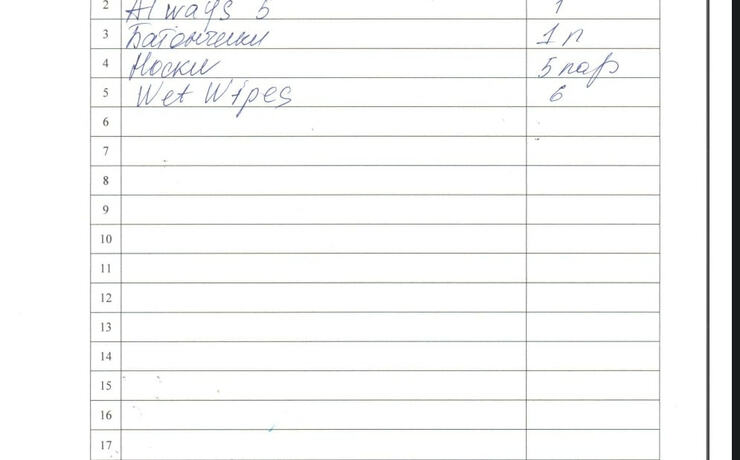 2 Always 5 1
3 Батончики 1п
4 Носки 5 пар
5 Wet Wipes 6
6
7
8
9
10
11
12
13
14
15
16
17